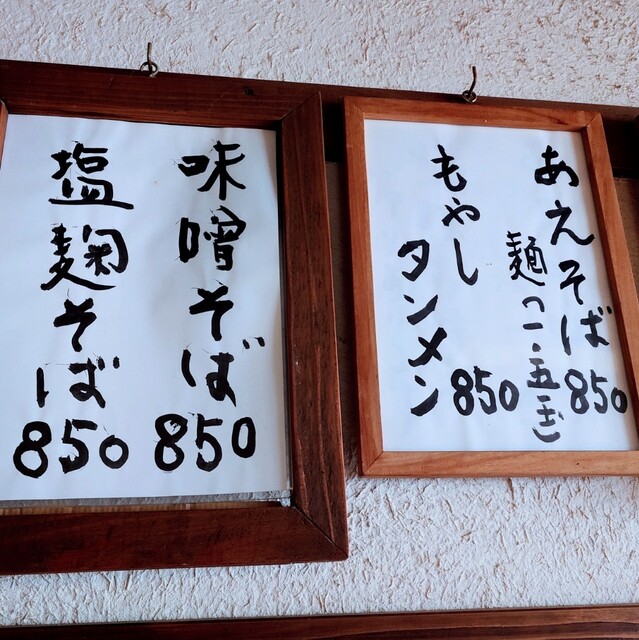 あえそば 850
麺(一.五玉)
もやし
タンメン 850
味噌そば 850
塩麹そば 850